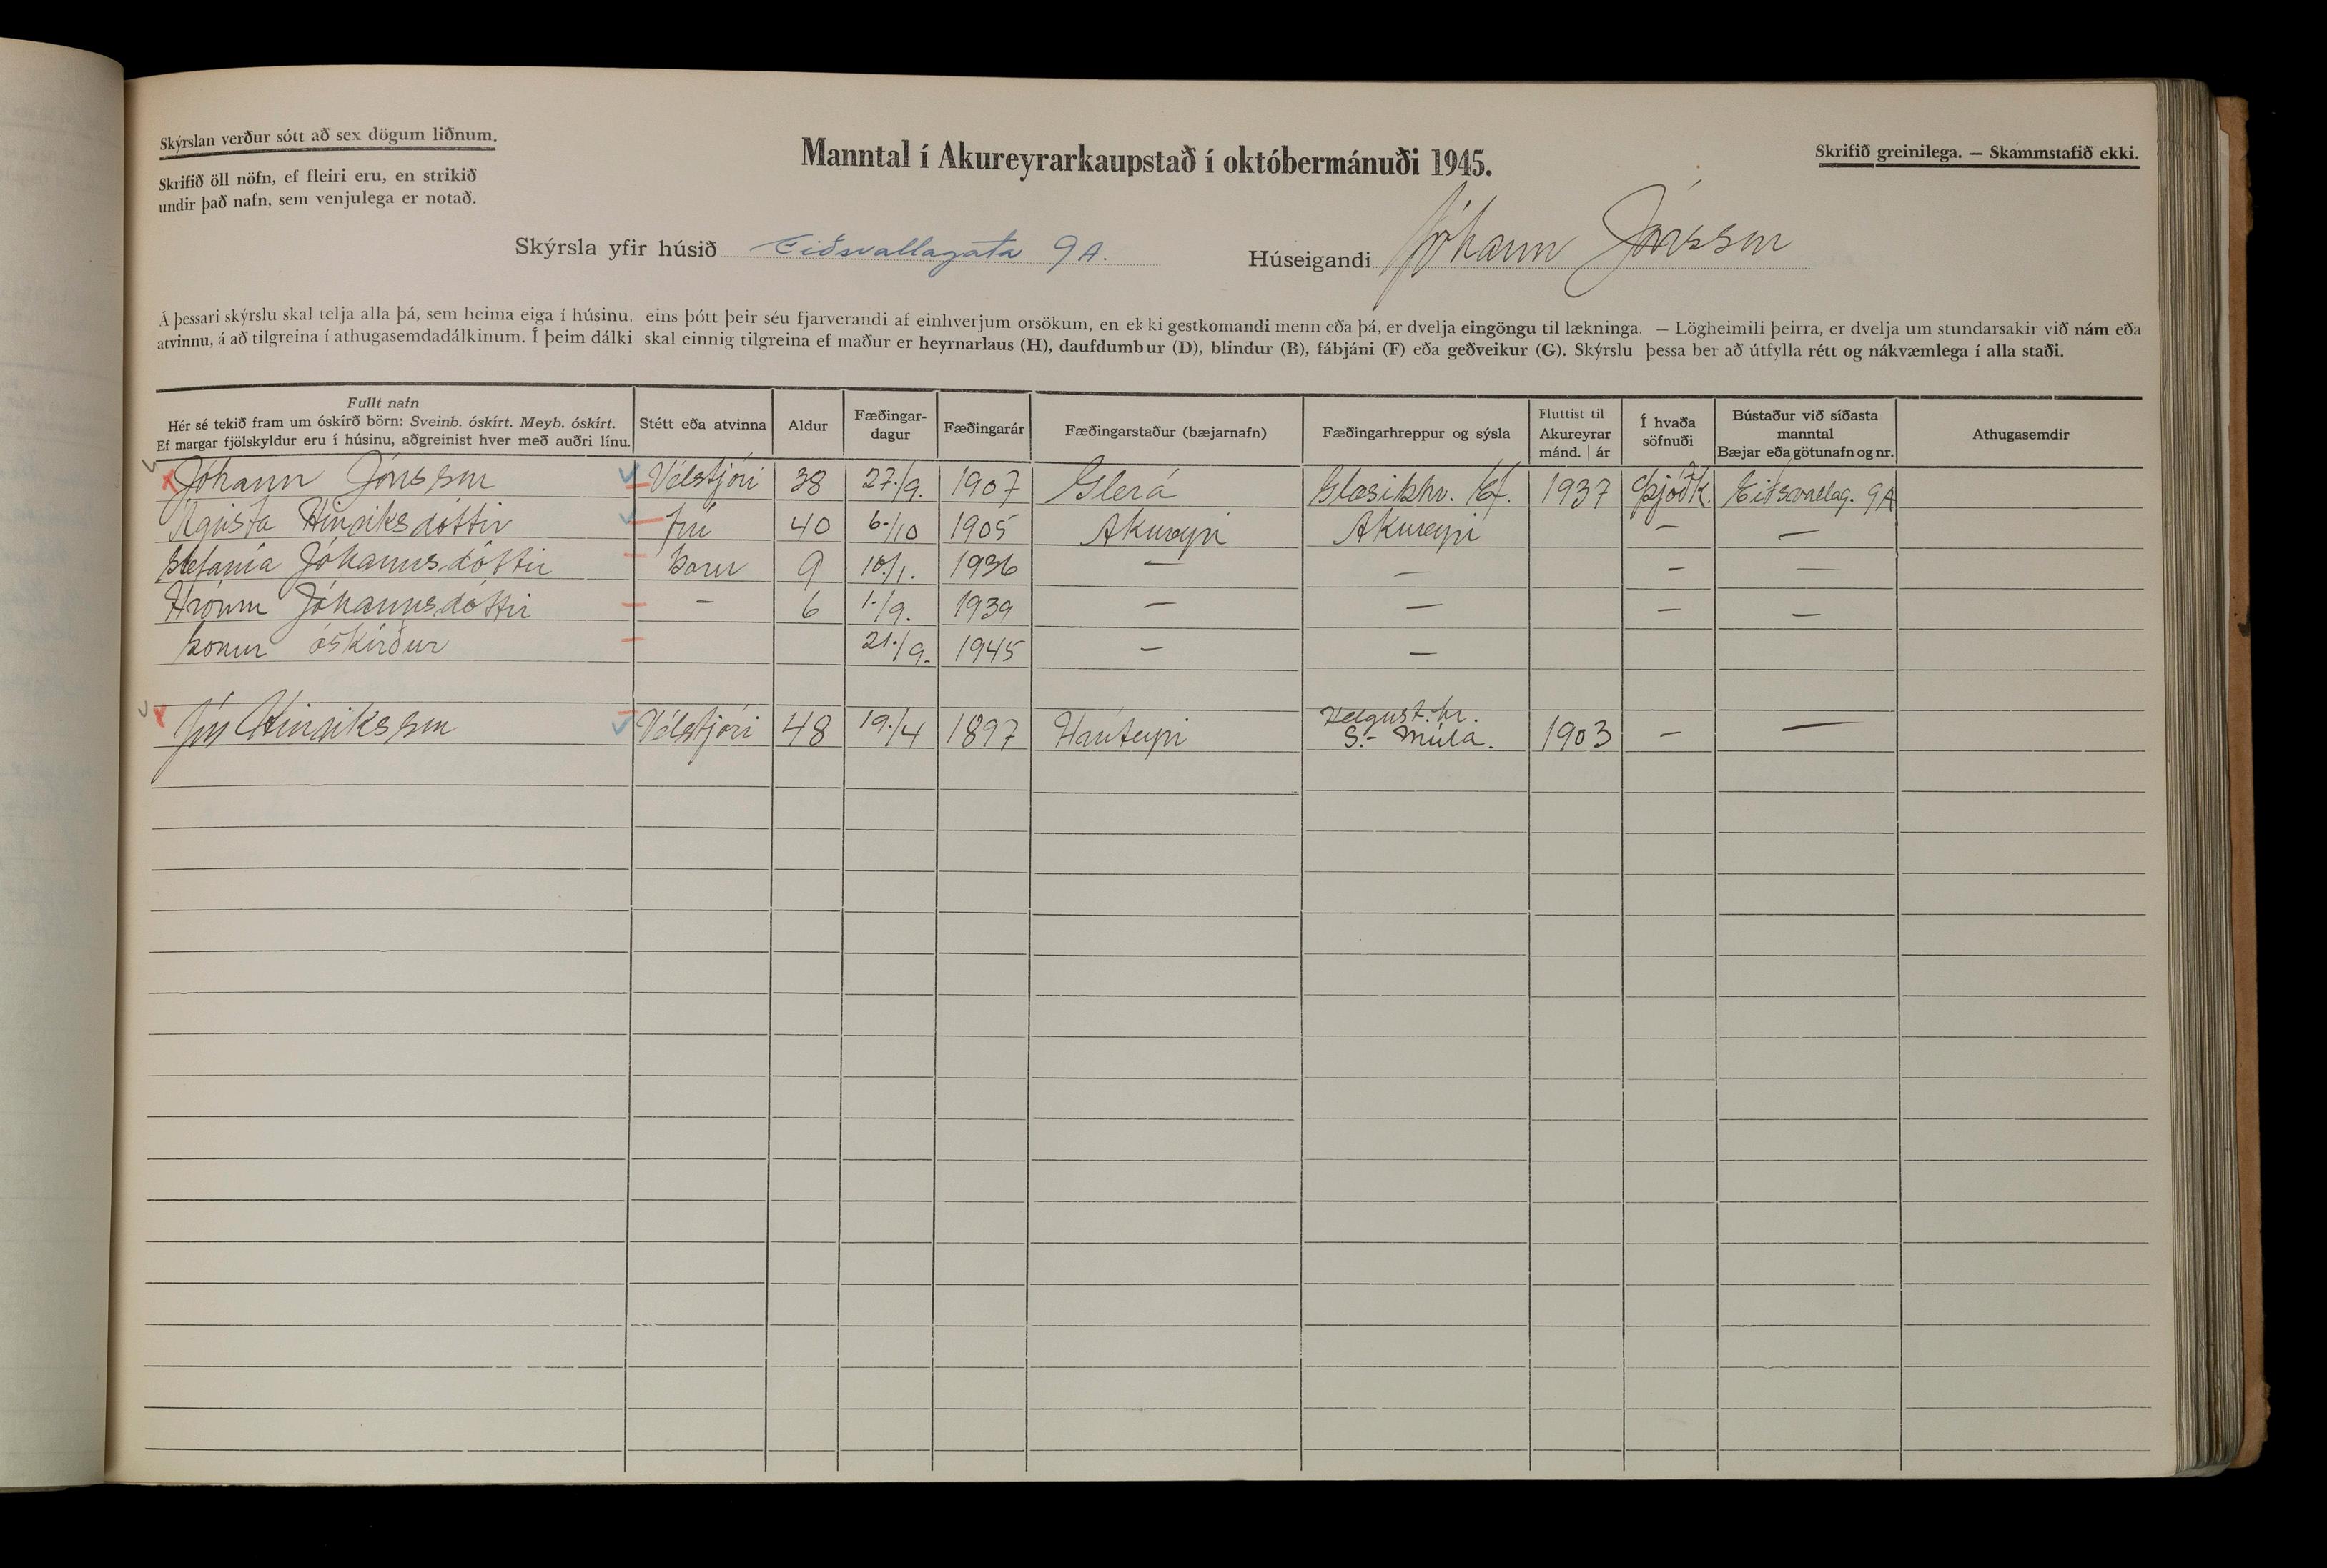 Skýrslan verður sótt að sex dögum liðnum.
Skrifið öll nöfn, ef fleiri eru, en strikið
undir það nafn, sem venjulega er notað.
Manntal í Akureyrarkaupstað í októbermánuði 1945.
Skrifið greinilega. — Skammstafið ekki.
Skýrsla yfir húsið Eiðsvallagata 9A.
Húseigandi Jóhann Jónsson
Á þessari skýrslu skal telja alla þá, sem heima eiga í húsinu, eins þótt þeir séu fjarverandi af einhverjum orsökum, en ekki gestkomandi menn eða þá, er dvelja eingöngu til lækninga. — Lögheimili þeirra, er dvelja um stundarsakir við nám eða
atvinnu, á að tilgreina í athugasemdadálkinum. Í þeim dálki skal einnig tilgreina ef maður er heyrnarlaus (H), daufdumbur (D), blindur (B), fábjáni (F) eða geðveikur (G). Skýrslu þessa ber að útfylla rétt og nákvæmlega í alla staði.
Fullt nafn
Hér sé tekið fram um óskírð börn: Sveinb. óskírt. Meyb. óskírt.
Ef margar fjölskyldur eru í húsinu, aðgreinist hver með auðri línu.
Stétt eða atvinna
Aldur
Fæðingar-
dagur
Fæðingarár
Fæðingarstaður (bæjarnafn)
Fæðingarhreppur og sýsla
Fluttist til
Akureyrar
mánd. | ár
Í hvaða
söfnuði
Bústaður við síðasta
manntal
Bæjar eða götunafn og nr.
Athugasemdir
Jóhann Jónsson Vélstjóri 38 27./9. 1907 Glerá Glæsibhr. Ef. 1937 Þjóðk. Eiðsvallag. 9A
Ágústa Hinriksdóttir frú 40 6./10 1905 Akureyri Akureyri — —
Stefanía Jóhannsdóttir barn 9 10./1. 1936 — — — —
Hrönn Jóhannsdóttir - 6 1./9. 1939 — — — —
Sonur óskírður 21./9. 1945 — —
Jón Hinriksson Vélstjóri 48 19./4 1897 Helgust.hr. 1903 — —
S.- Múla.